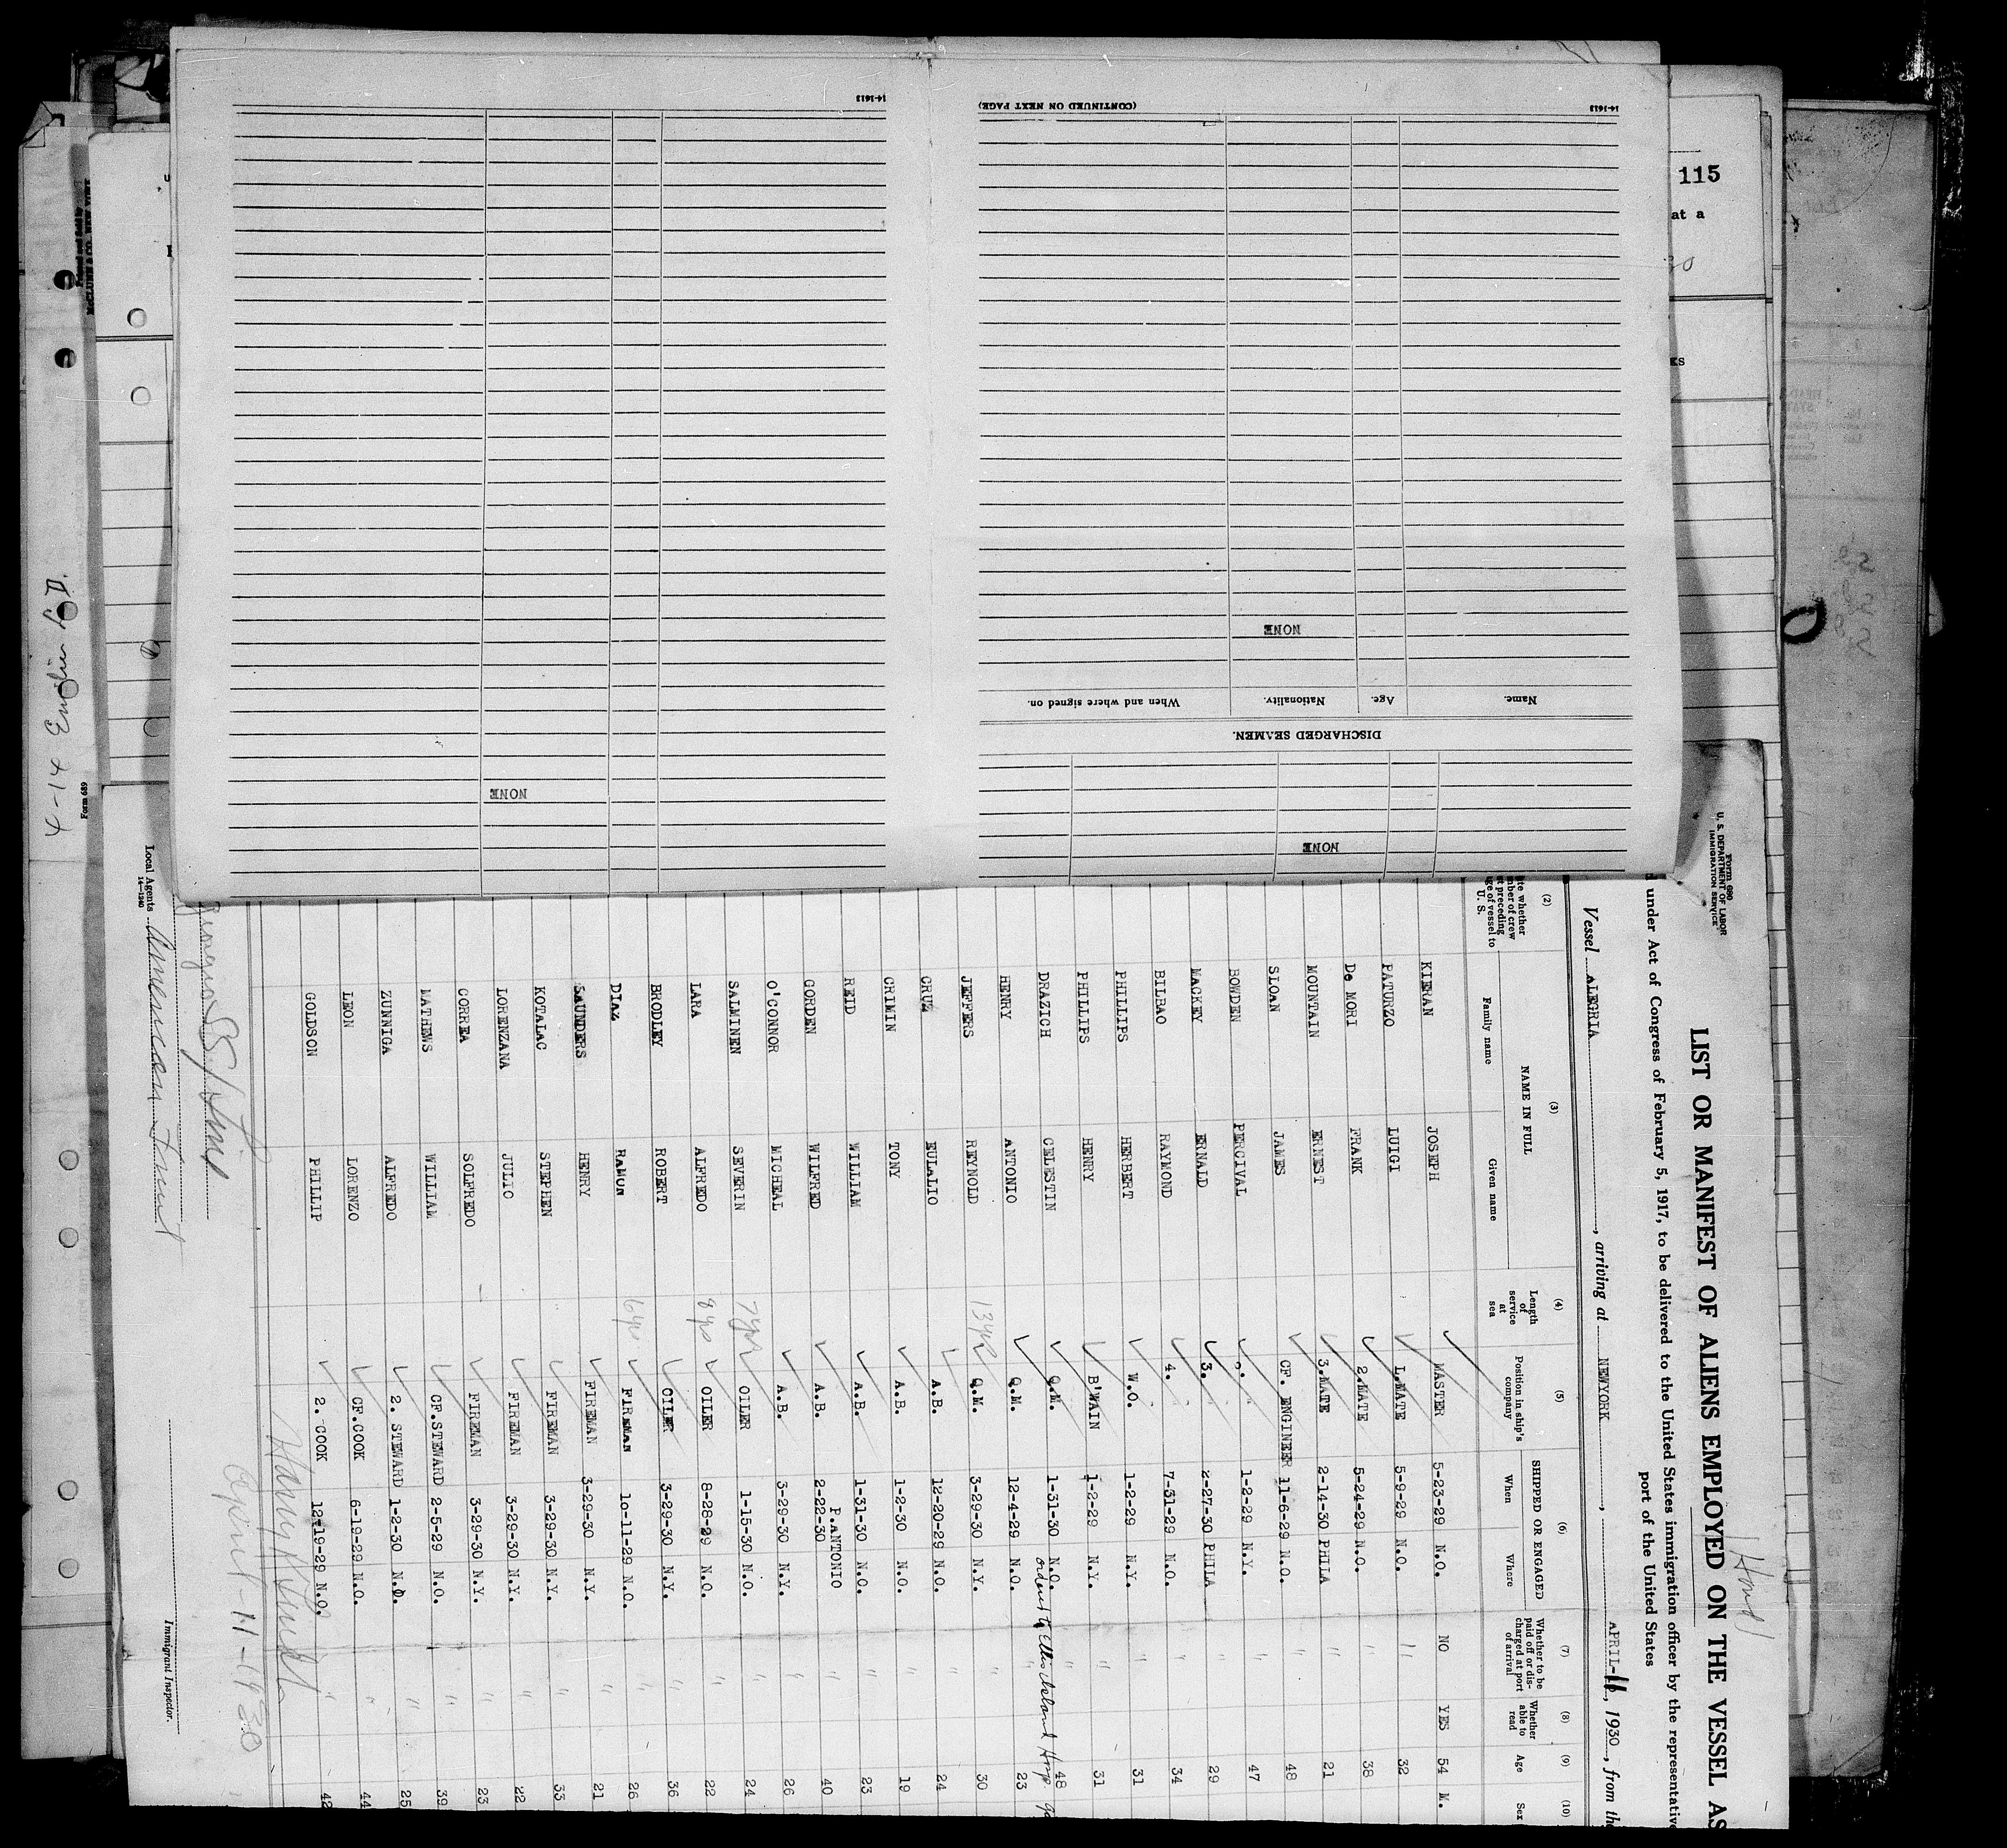 Form 680
U. S. DEPARTMENT OF LABOR
IMMIGRATION SERVICE
LIST OR MANIFEST OF ALIENS EMPLOYED ON THE VESSEL AS
under Act of Congress of February 5, 1917, to be delivered to the United States immigration officer by the representative
port of the United States
Vessel ALEGRIA, arriving at NEWYORK, APRIL-11, 1930, from the
(2) (3) (4) (5) (6) (7) (8) (9) (10)
NAME IN FULL SHIPPED OR ENGAGED
Family name Given name Length of service at sea Position in ship's company When Where Whether to be paid off or discharged at port of arrival Whether able to read Age Sex
KIERAN JOSEPH MASTER 5-23-29 N.O. NO YES 54 M.
PATURZO LUIGI 1.MATE 5-9-29 N.O. " 32
De MORI FRANK 2.MATE 5-24-29 N.O. " 38
MOUNTAIN ERNEST 3.MATE 2-14-30 PHILA " 21
SLOAN JAMES CF. ENGINEER 11-6-29 N.O. " 48
BOWDEN PERCIVAL 2. " 1-2-29 N.Y. " 47
MACKEY ERNALD 3. " 2-27-30 PHILA " 29
BILBAO RAYMOND 4. " 7-31-29 N.O. " 34
PHILLIPS HERBERT W.O. 1-2-29 N.Y. " 31
PHILLIPS HENRY B'WAIN 1-2-29 N.Y. " 31
DRAZICH CELESTIN Q.M. 1-31-30 N.O. " 48
HENRY ANTONIO Q.M. 12-4-29 N.O. " 23
JEFFERS REYNOLD 13 yrs Q.M. 3-29-30 N.Y. " 30
CRUZ EULALIO A.B. 12-20-29 N.O. " 24
CRIMIN TONY A.B. 1-2-30 N.O. " 19
REID WILLIAM A.B. 1-31-30 N.O. " 23
GORDEN WILFRED A.B. 2-22-30 P.ANTONIO " 40
O'CONNOR MICHEAL A.B. 3-29-30 N.Y. " 26
SALMINEN SEVERIN 7 yrs OILER 1-15-30 N.O. " 24
LARA ALFREDO 8 yrs OILER 8-28-29 N.O. " 22
BRODLEY ROBERT OILER 3-29-30 N.Y. " 36
DIAZ RAMON 6 yrs FIREMAN 10-11-29 N.O. " 26
SAUNDERS HENRY FIREMAN 3-29-30 N.Y. " 21
KOTALAC STEPHEN FIREMAN 3-29-30 N.Y. " 33
LORENZANA JULIO FIREMAN 3-29-30 N.Y. " 22
CORREA SOLFREDO FIREMAN 3-29-30 N.Y. " 23
MATHEWS WILLIAM CF.STEWARD 2-5-29 N.O. " 39
ZUNNIGA ALFREDO 2. STEWARD 1-2-30 N.O. " 25
LEON LORENZO CF.COOK 6-19-29 N.O. " 44
GOLDSON PHILLIP 2. COOK 12-19-29 N.O. " 42
April-11-1930
Local Agents
14-1240
American Fruit
Immigrant Inspector.
NONE
DISCHARGED SEAMEN.
Name. Age. Nationality. When and where signed on.
NONE
(CONTINUED ON NEXT PAGE)
14-1613
NONE
14-1613
115
at a
Form 689
4-14